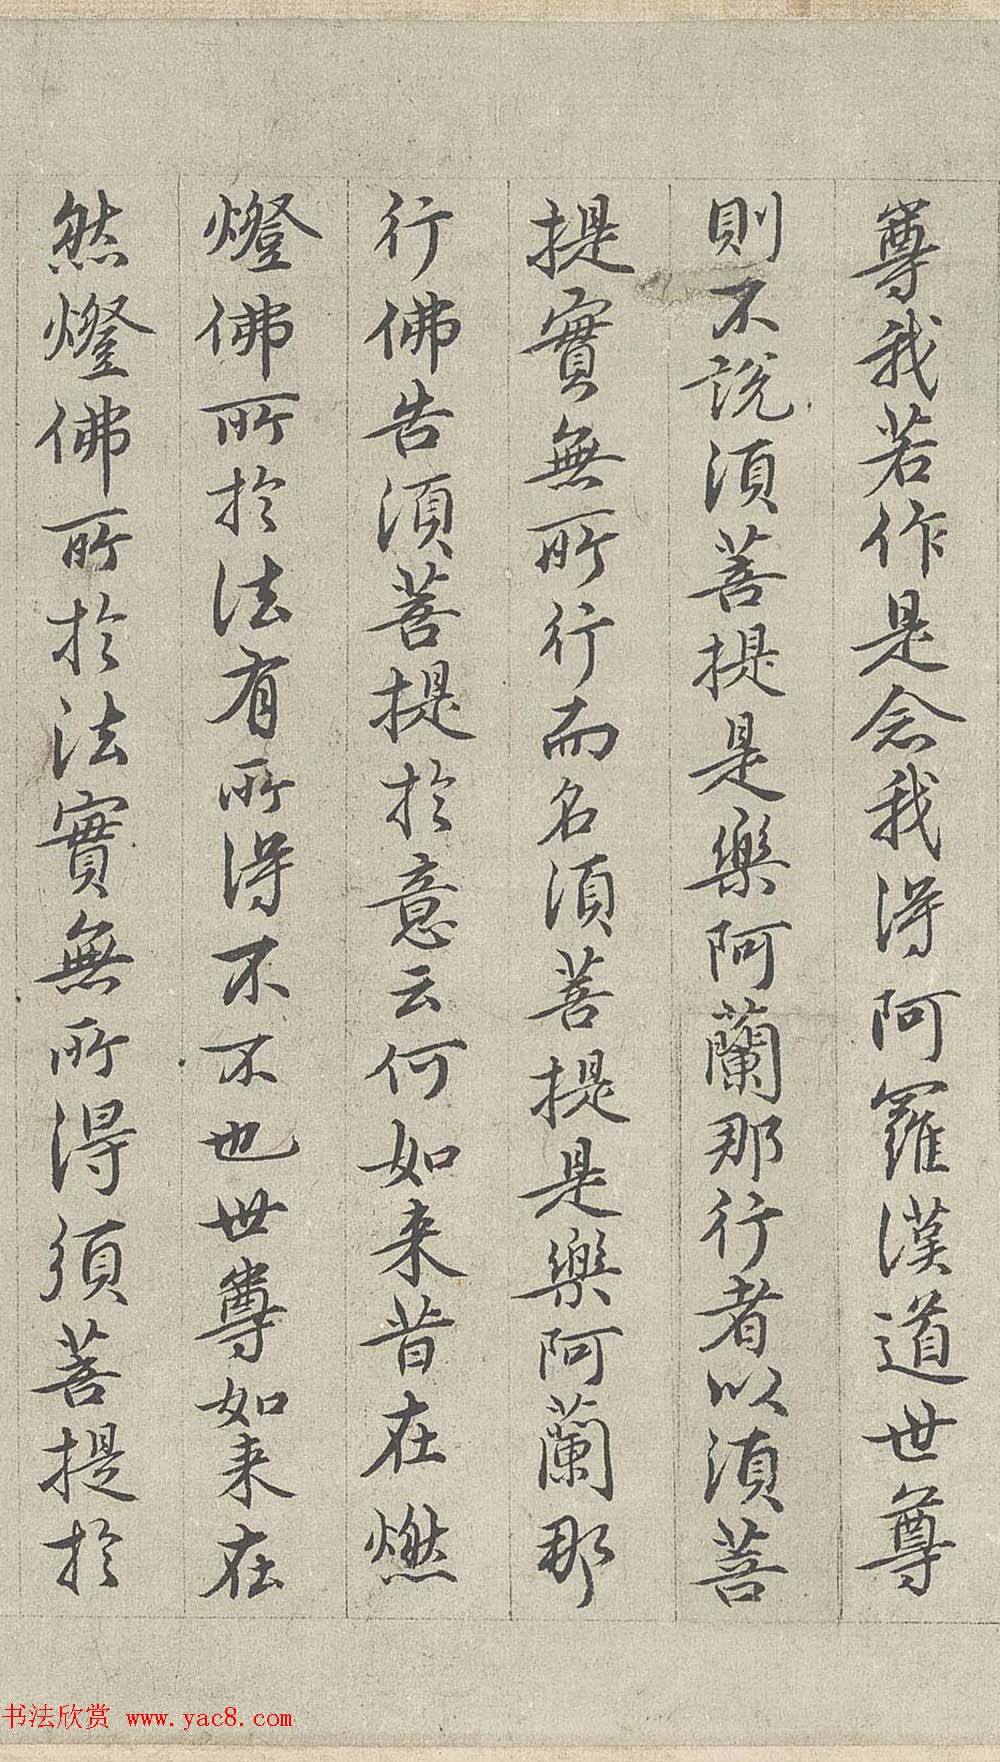 尊我若作是念我得阿羅漢道世尊
則不說須菩提是樂阿蘭那行者以須菩
提實無所行而名須菩提是樂阿蘭那
行佛告須菩提於意云何如来昔在燃
燈佛所於法有所得不不也世尊如来在
然燈佛所於法實無所得須菩提於
书法欣赏 www.yac8.com